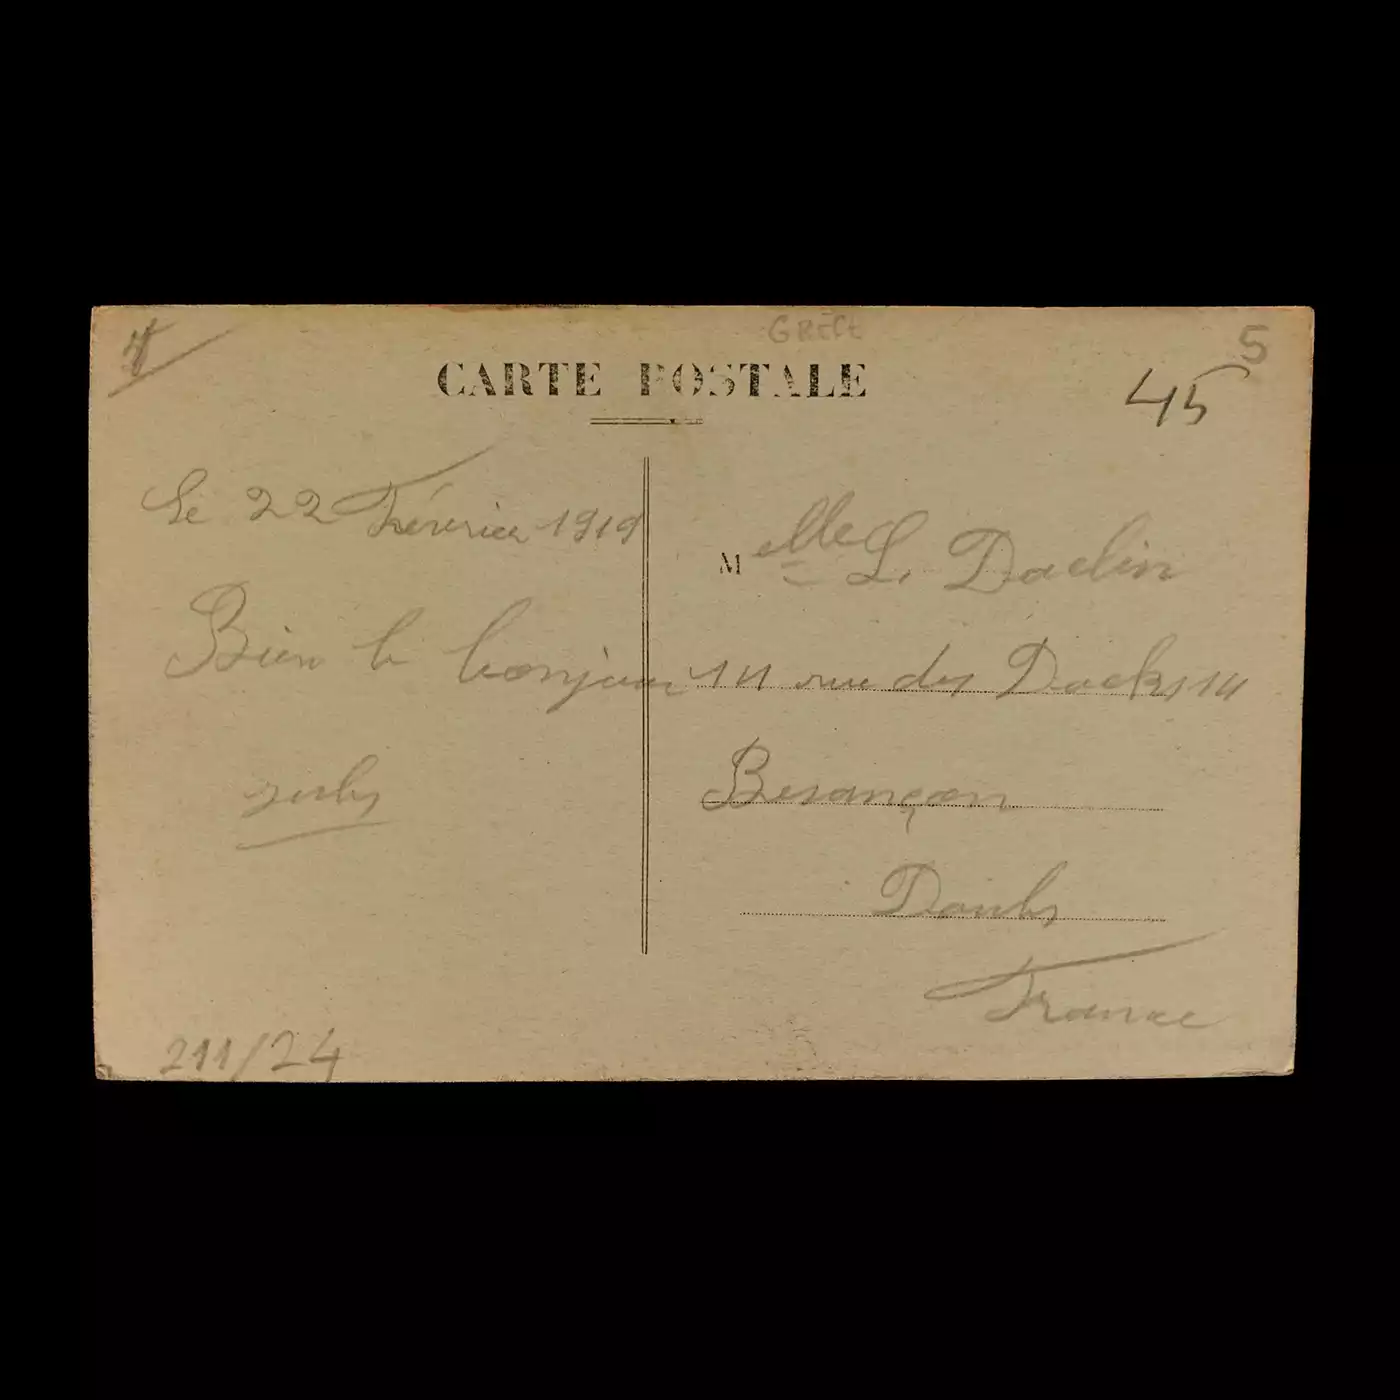 GRECE
5
CARTE POSTALE
45
Le 22 Février 1919
Bien le bonjour
211/24
Melle L. Daclin
14 rue des Docks 14
Besançon
Doubs
France